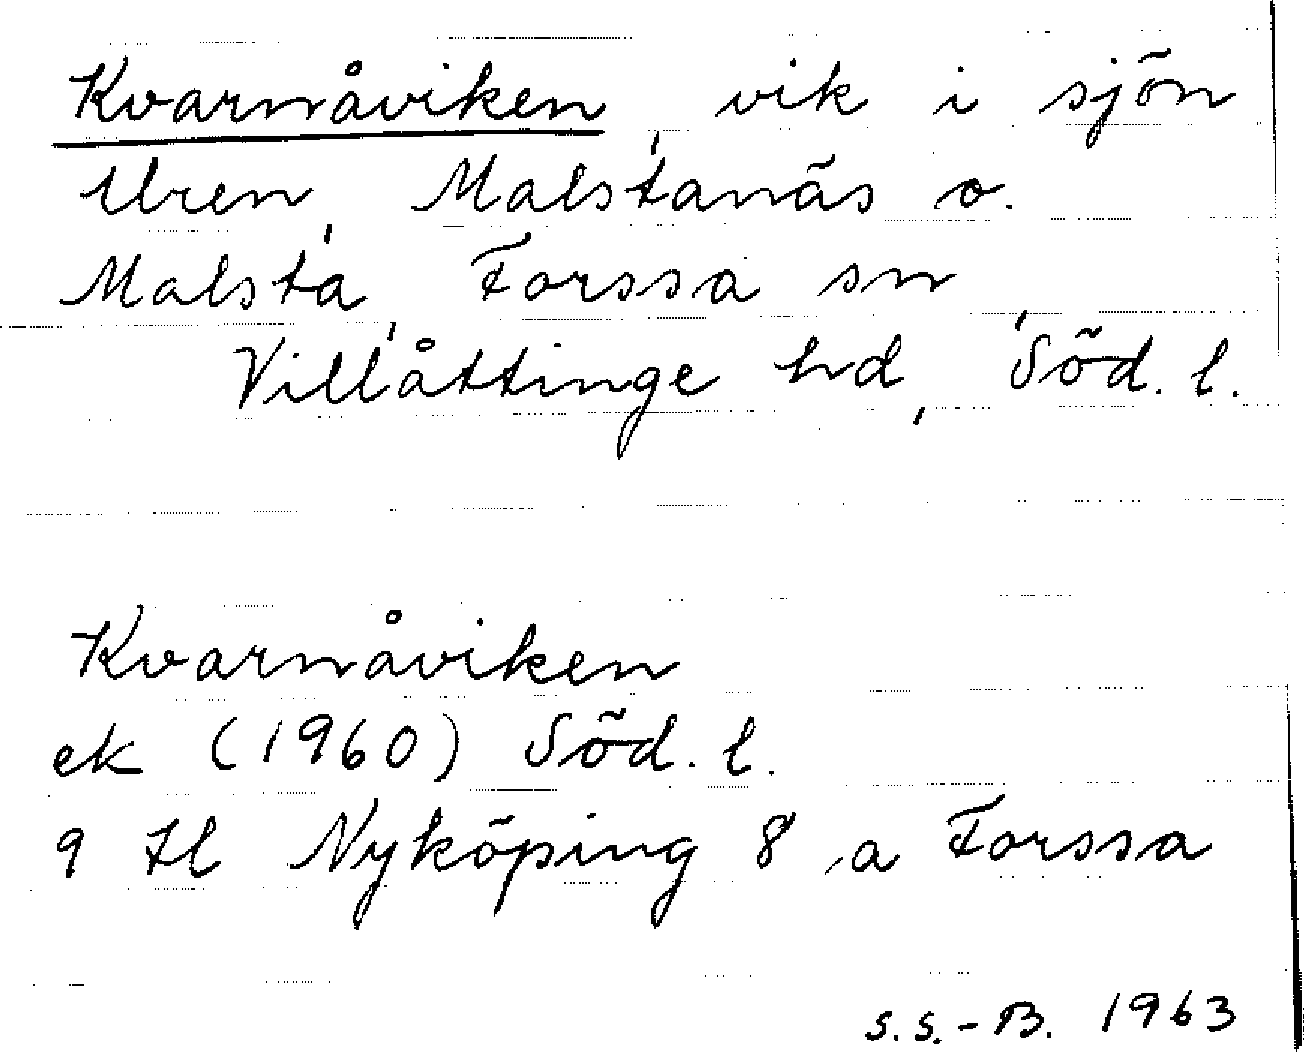 Kvarnåviken, vik i sjön
Uren, Malstanäs o.
Malsta, Forssa sn,
Villåttinge hd, Söd. l.
Kvarnåviken
ek (1960) Söd. l.
9 H Nyköping 8 a Forssa
S.S.-B. 1963